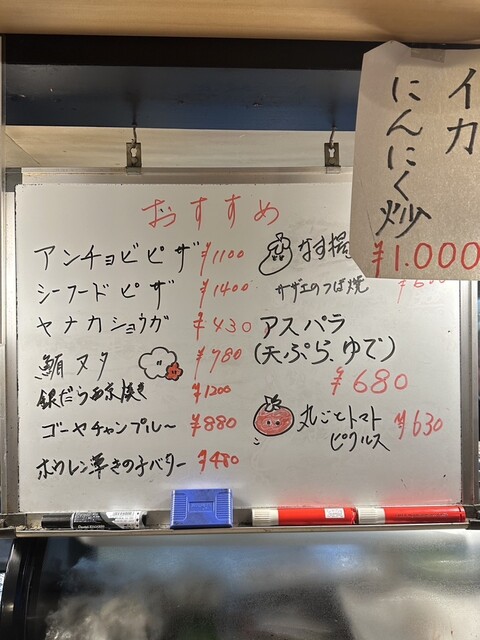 おすすめ
アンチョビピザ ¥1100
シーフードピザ ¥1400
ヤナカショウガ ¥430
鮪ヌタ ¥780
銀だら西京焼き ¥1200
ゴーヤチャンプルー ¥880
ホウレン草きの子バター ¥480
なす揚
サザエのつぼ焼
アスパラ
(天ぷら、ゆで)
¥680
丸ごとトマト
ピクルス ¥630
イカ
にんにく炒
¥1.000